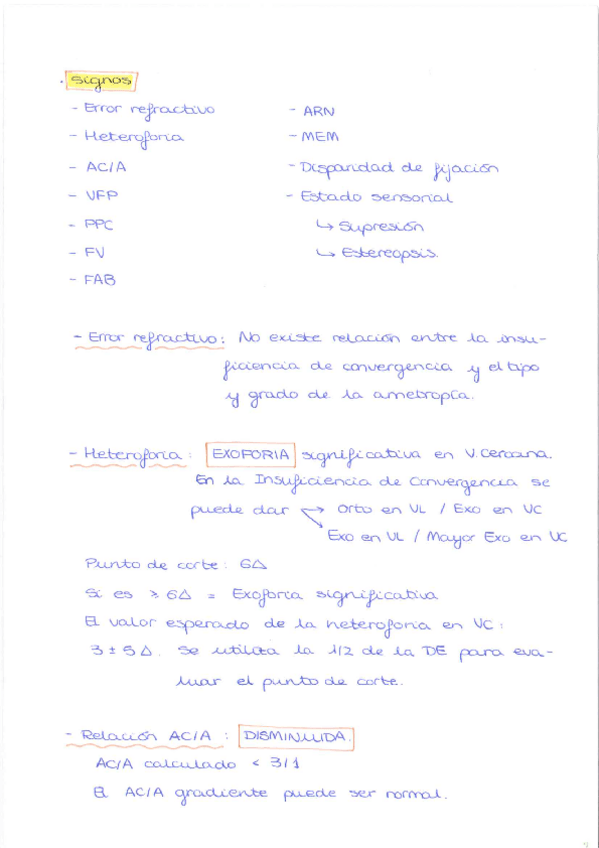 . Signos
- Error refractivo
- Heteroforia
- AC/A
- VFP
- PPC
- FV
- FAB
- ARN
- MEM
- Disparidad de fijación
- Estado sensorial
↳ Supresión
↳ Estereopsis.
- Error refractivo: No existe relación entre la insu-
ficiencia de convergencia y el tipo
y grado de la ametropía.
- Heteroforia: EXOFORIA significativa en V. Cercana.
En la Insuficiencia de Convergencia se
puede dar → Orto en VL / Exo en VC
Exo en VL / Mayor Exo en VC
Punto de corte: 6Δ
Si es ⩾ 6Δ = Exoforia significativa
El valor esperado de la heteroforia en VC:
3 ± 5 Δ. Se utiliza la 1/2 de la DE para eva-
luar el punto de corte.
- Relación AC/A : DISMINUIDA.
AC/A calculado < 3/1
El AC/A gradiente puede ser normal.